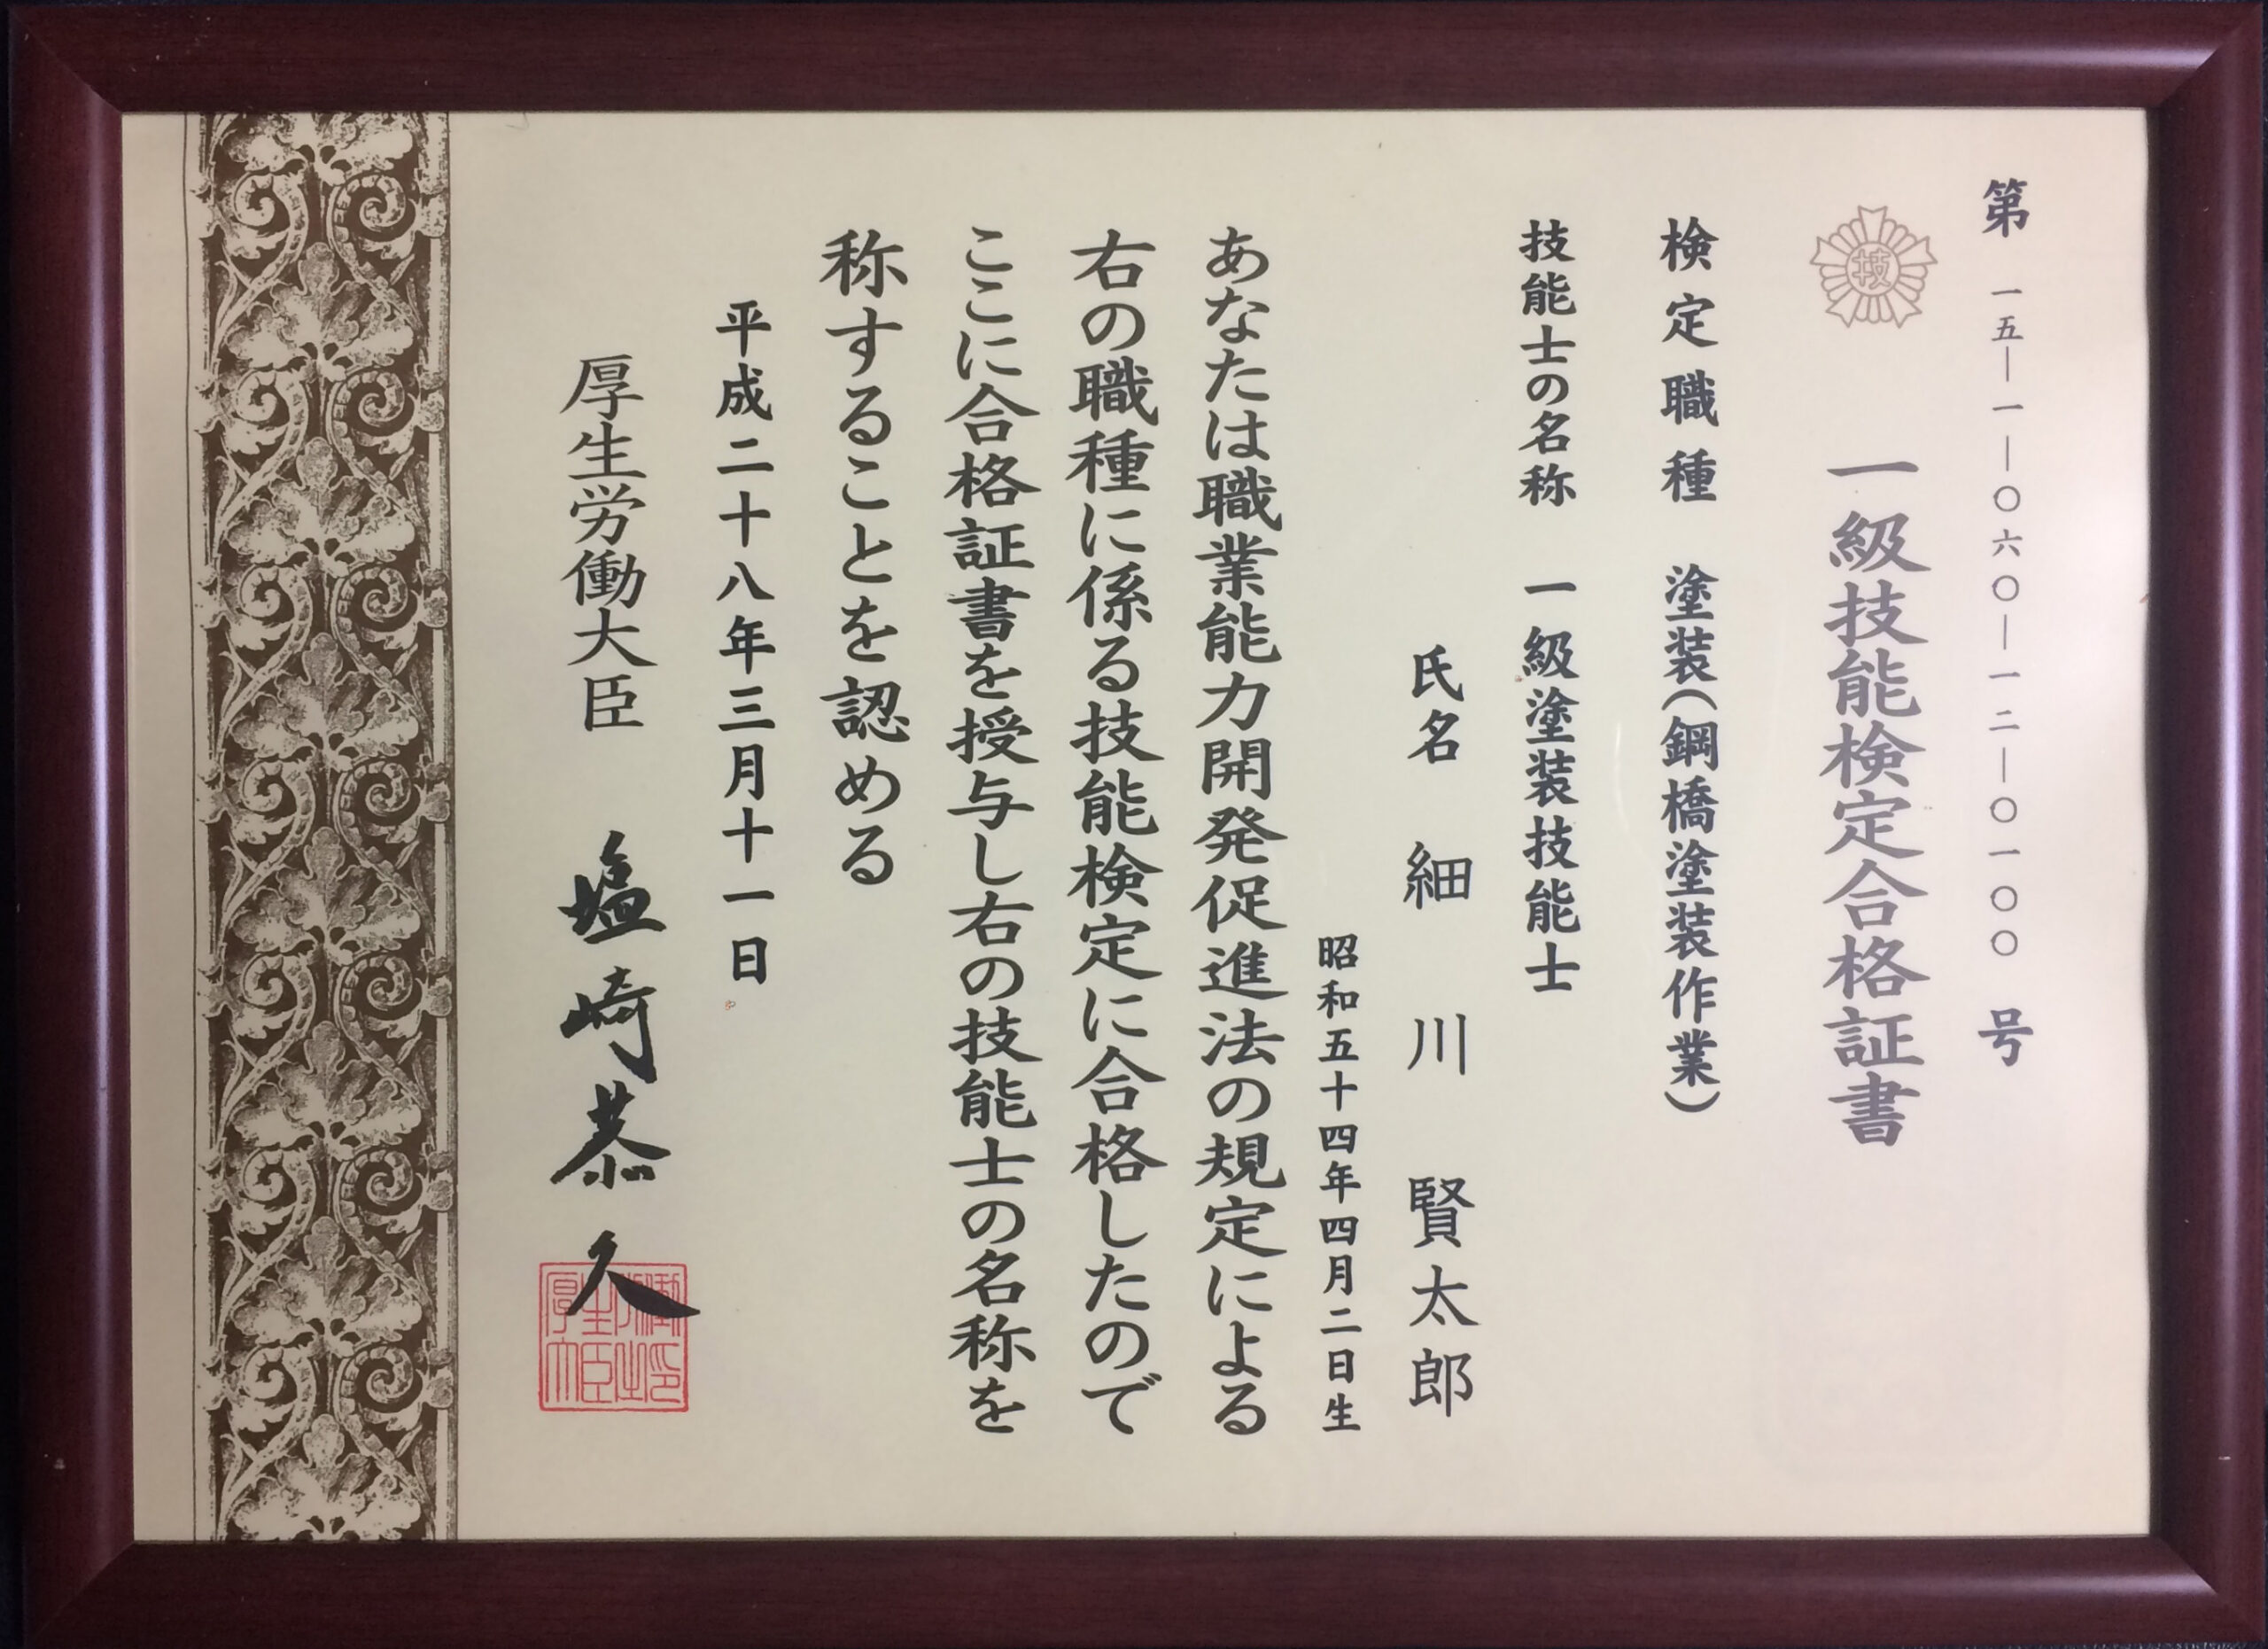 第 一五―一―〇六〇―一二―〇一〇〇 号
技
一級技能検定合格証書
検定職種 塗装(鋼橋塗装作業)
技能士の名称 一級塗装技能士
氏名 細川 賢太郎
昭和五十四年四月二日生
あなたは職業能力開発促進法の規定による
右の職種に係る技能検定に合格したので
ここに合格証書を授与し右の技能士の名称を
称することを認める
平成二十八年三月十一日
厚生労働大臣 塩崎恭久